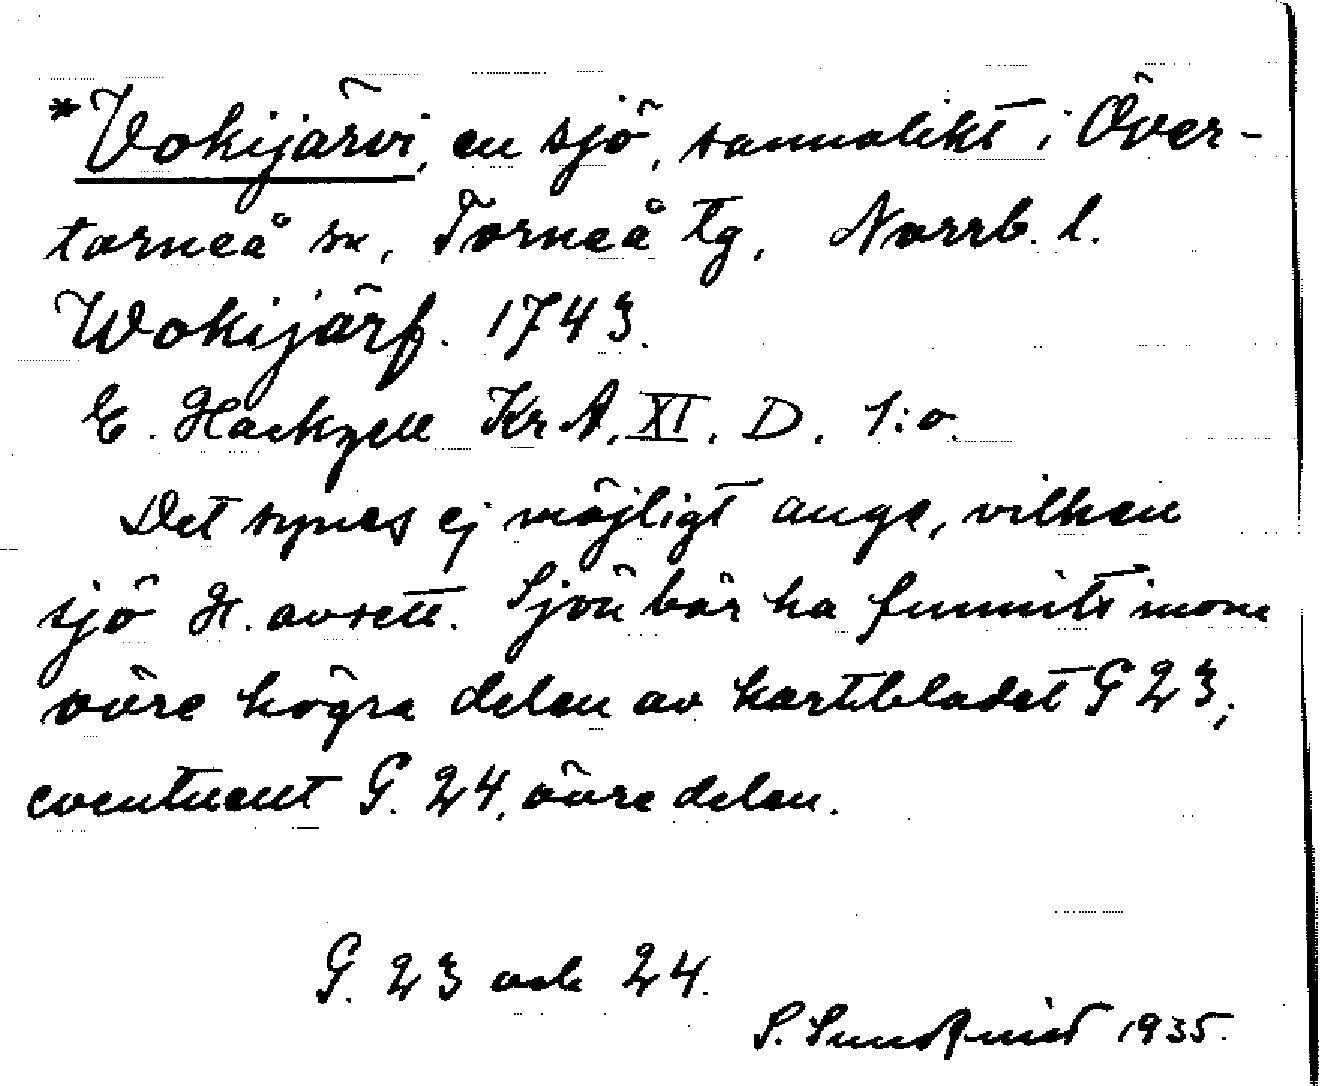 *Vokijärvi, en sjö, sannolikt i Över-
torneå sn, Torneå tg, Norrb. l.
Wokijärf. 1743.
E. Hackzell KrA. XI. D. 1:o.
Det synes ej möjligt ange, vilken
sjö H. avsett. Sjön bör ha funnits inom
övre högra delen av kartbladet G 23,
eventuellt G. 24, övre delen.
G. 23 och 24.
S. Sundqvist 1935.